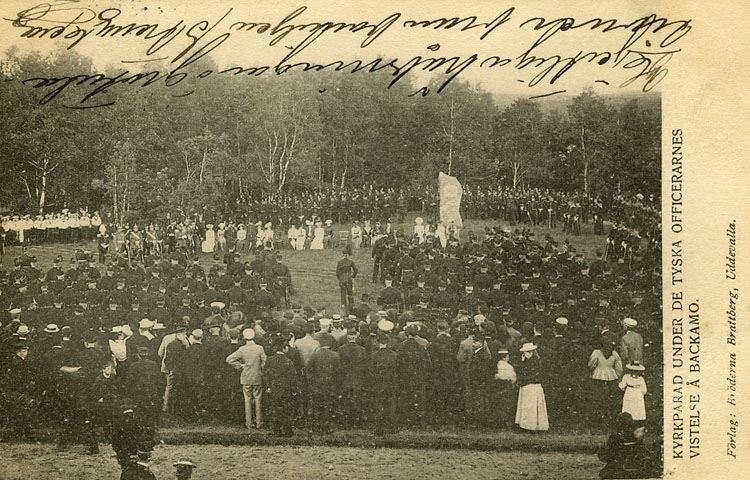 Hjertliga hälsningar
från familjen
KYRKPARAD UNDER DE TYSKA OFFICERARNES
VISTELSE Å BACKAMO.
Förlag: Bröderna Brattberg, Uddevalla.